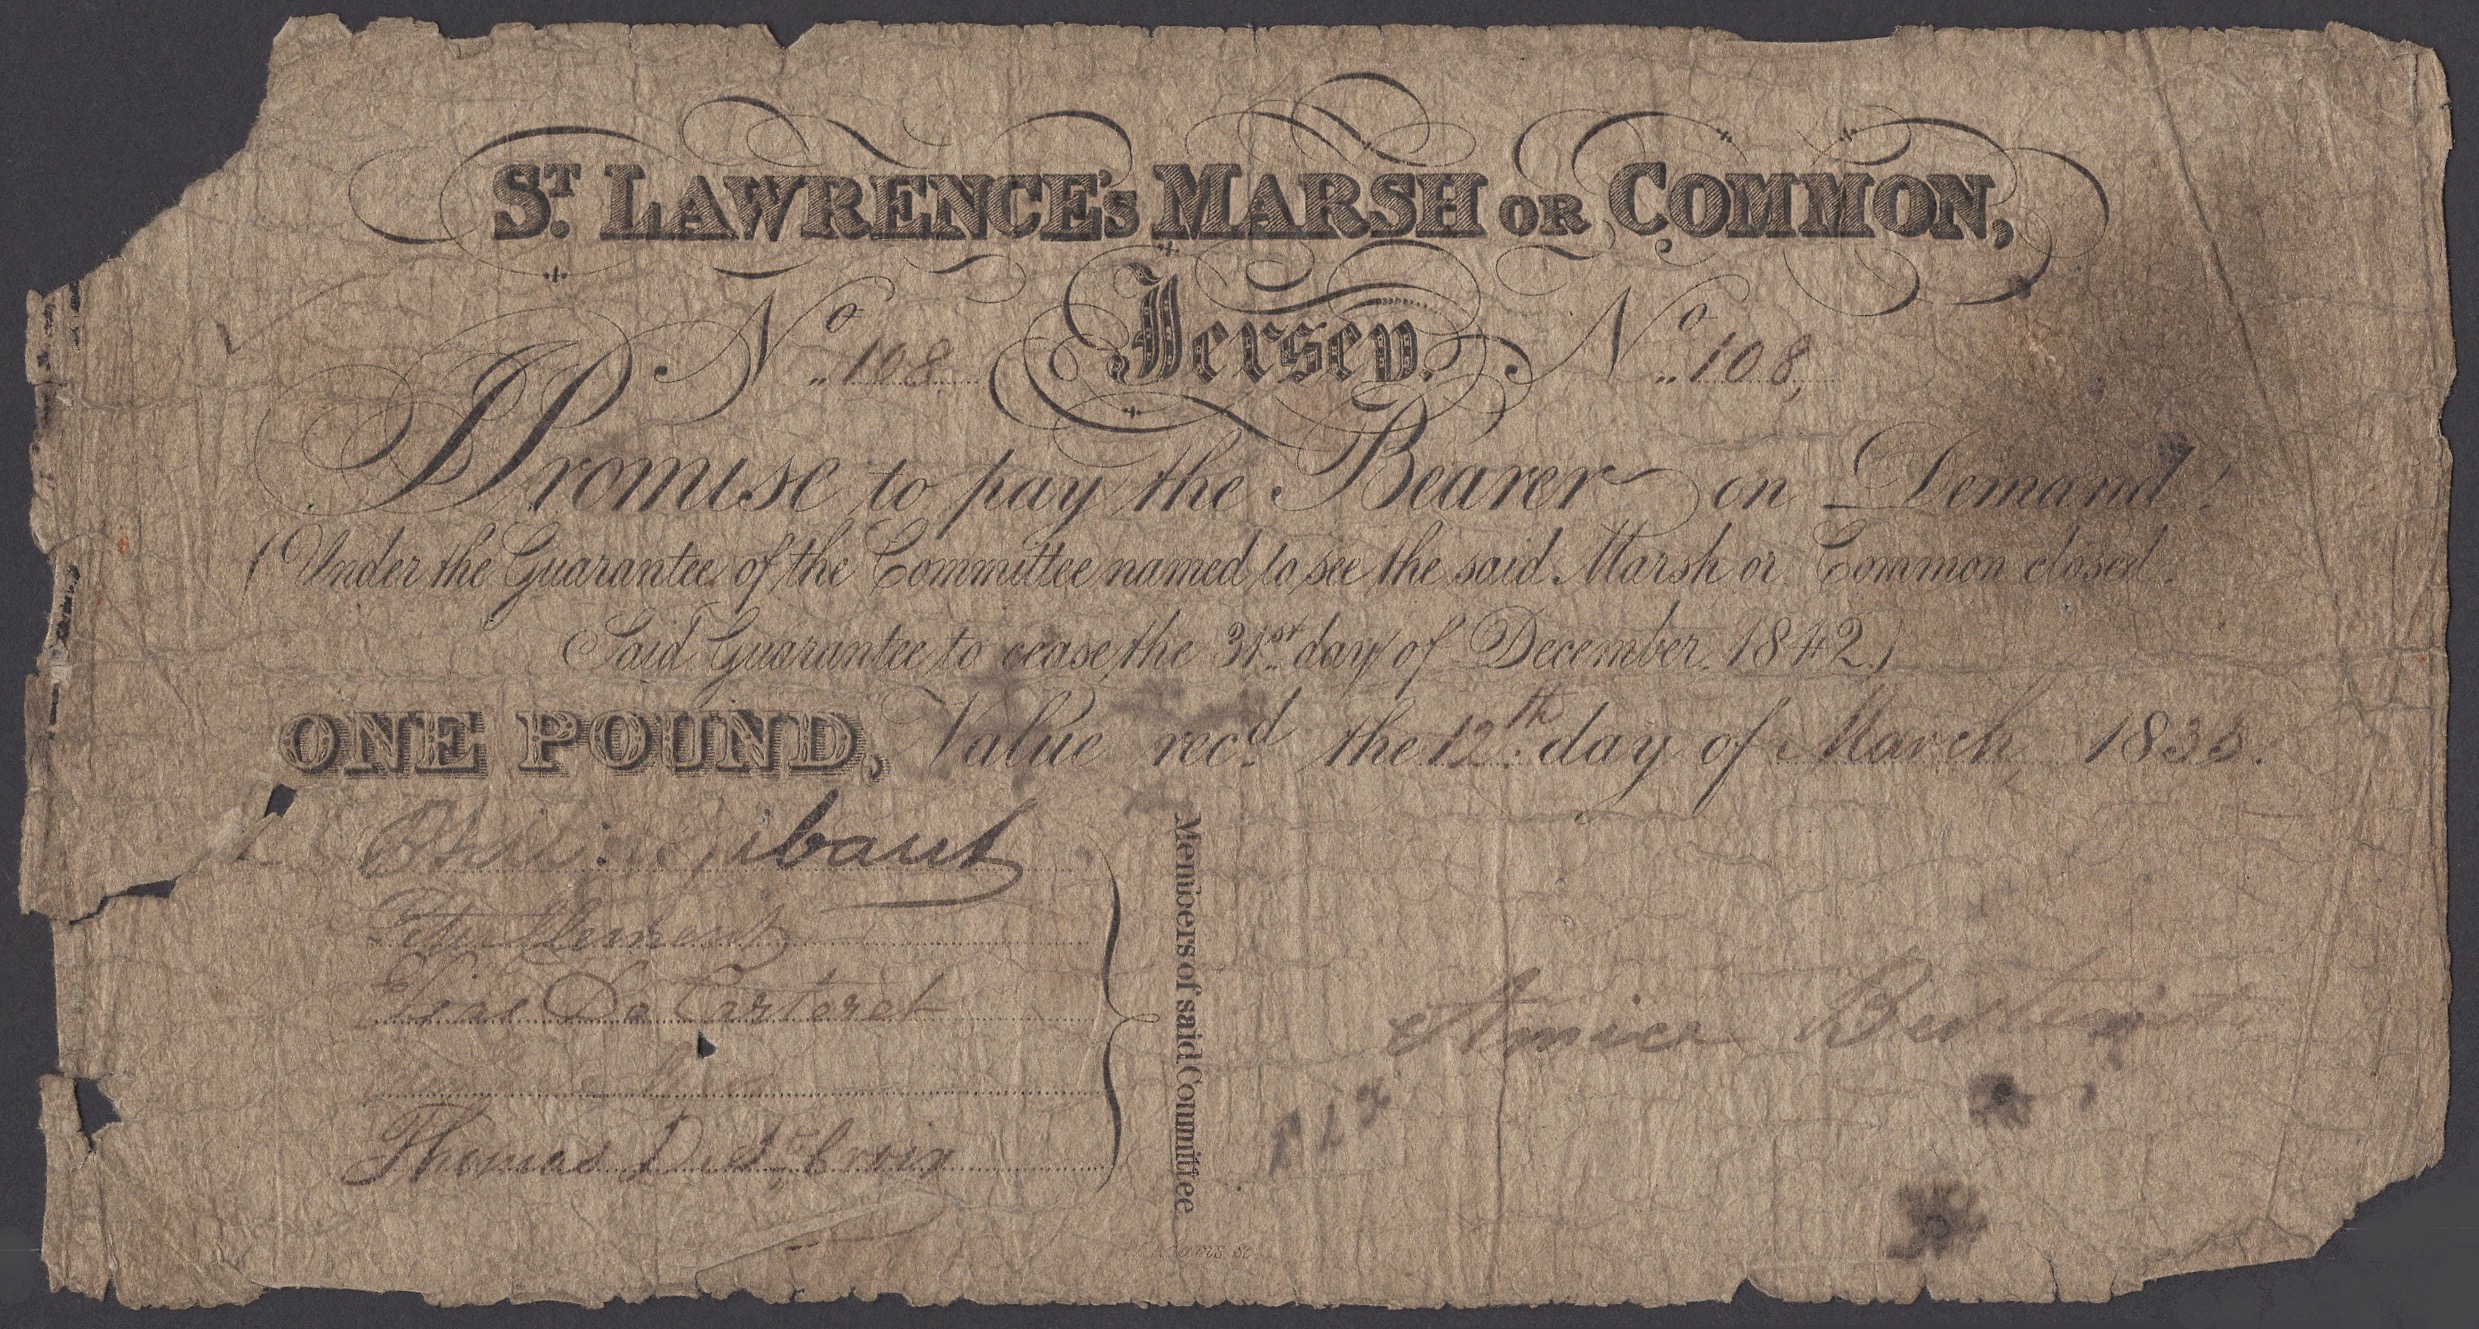 ST. LAWRENCE'S MARSH OR COMMON,
Jersey.
No 108 No 108,
I Promise to pay the Bearer on Demand
(Under the Guarantee of the Committee named to see the said Marsh or Common closed.
Said Guarantee to cease the 31st day of December 1842.)
ONE POUND, Value recd. the 12th day of March, 1835.
Philip Gibaut
Peter Clement
Elias De Carteret
Thomas De Ste Croix
Members of said Committee
Amice
Adams Sc